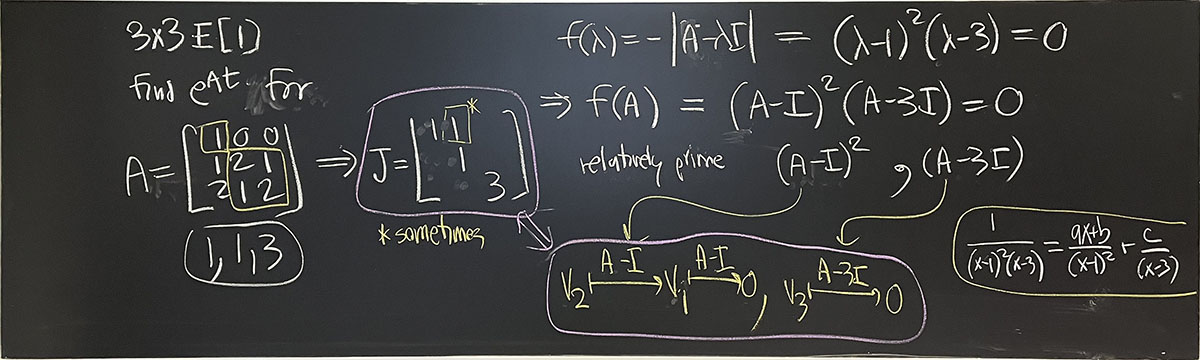 3x3 E[1)
Find e^At For
A = [1 0 0
1 2 1
2 1 2]
1, 1, 3
⇒ J = [1 1*
1
3]
* sometimes
f(λ) = -|A-λI| = (λ-1)²(λ-3) = 0
⇒ f(A) = (A-I)²(A-3I) = 0
relatively prime (A-I)², (A-3I)
A-I A-I A-3I
v₂ ↦ v₁ ↦ 0, v₃ ↦ 0
1/((x-1)²(x-3)) = (ax+b)/(x-1)² + c/(x-3)